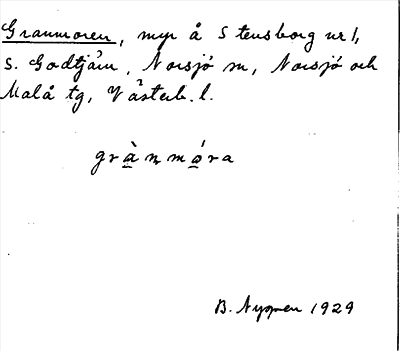 Granmoren, myr å Stensborg nr 1,
S. Godtjärn, Norsjö sn, Norsjö och
Malå tg, Västerb. l.
grànmóra
B. Nyman 1929